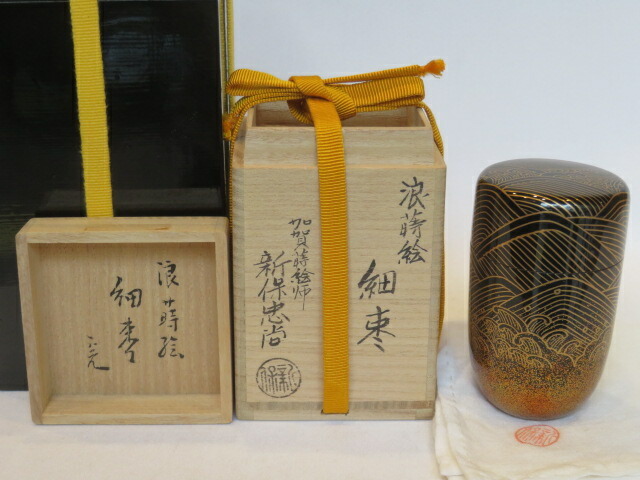 浪蒔絵
細棗
浪蒔絵
細棗
加賀蒔絵師
新保忠尚